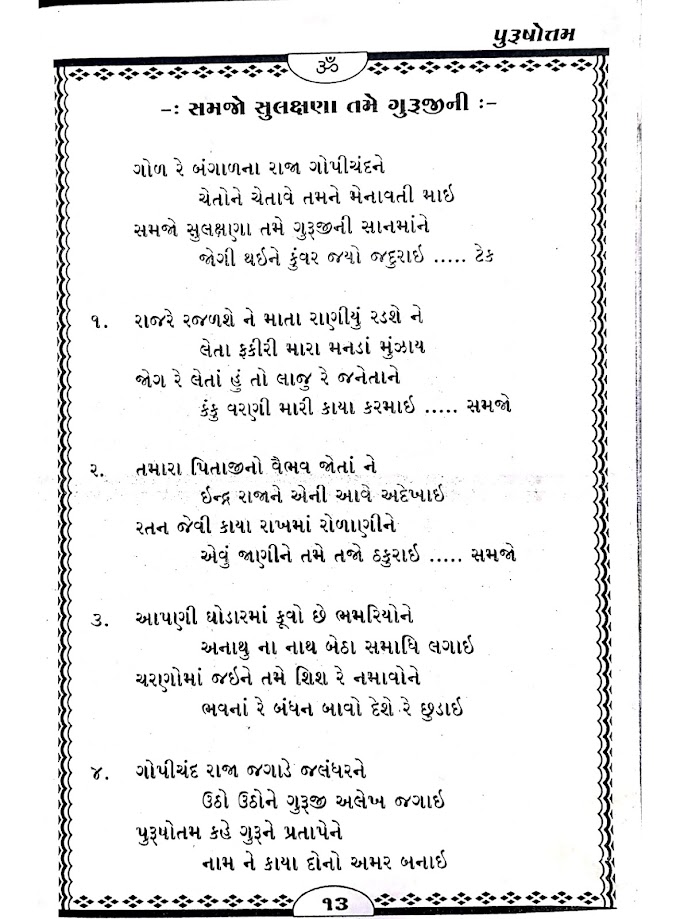 પુરૂષોત્તમ
ૐ
-: સમજો સુલક્ષણા તમે ગુરૂજીની :-
ગોળ રે બંગાળના રાજા ગોપીચંદને
ચેતોને ચેતાવે તમને મેનાવતી માઇ
સમજો સુલક્ષણા તમે ગુરૂજીની સાનમાંને
જોગી થઇને કુંવર જયો જદુરાઇ ..... ટેક
૧. રાજરે રજળશે ને માતા રાણીયું રડશે ને
લેતા ફકીરી મારા મનડાં મુંઝાય
જોગ રે લેતાં હું તો લાજુ રે જનેતાને
કંકુ વરણી મારી કાયા કરમાઇ ..... સમજો
૨. તમારા પિતાજીનો વૈભવ જોતાં ને
ઇન્દ્ર રાજાને એની આવે અદેખાઇ
રતન જેવી કાયા રાખમાં રોળાણીને
એવું જાણીને તમે તજો ઠકુરાઇ ..... સમજો
૩. આપણી ઘોડારમાં કૂવો છે ભમરિયોને
અનાથુ ના નાથ બેઠા સમાધિ લગાઇ
ચરણોમાં જઇને તમે શિશ રે નમાવોને
ભવનાં રે બંધન બાવો દેશે રે છુડાઇ
૪. ગોપીચંદ રાજા જગાડે જલંધરને
ઉઠો ઉઠોને ગુરૂજી અલેખ જગાઇ
પુરૂષોતમ કહે ગુરૂને પ્રતાપેને
નામ ને કાયા દોનો અમર બનાઇ
૧૩